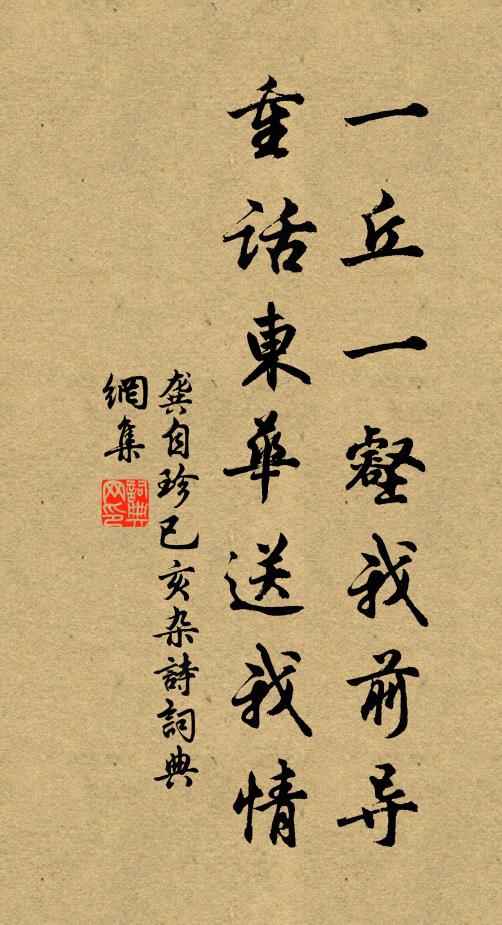 一丘一壑我前导
重话東華送我情
龚自珍已亥杂詩詞典
網集
詞典網印